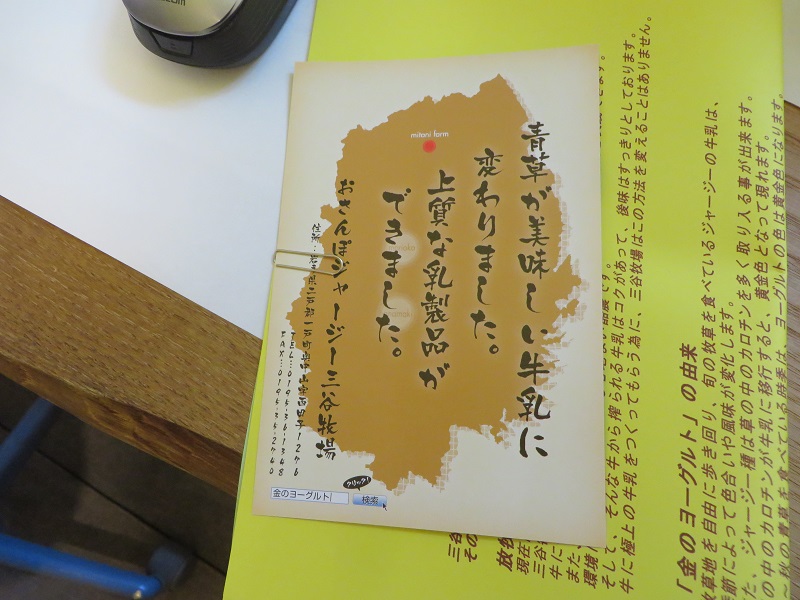 mitani farm
青草が美味しい牛乳に
変わりました。
上質な乳製品が
できました。
おさんぽジャージー三谷牧場
TEL:0195-36-1348
FAX:0195-35-2740
クリック!
金のヨーグルト 検索
そして、そんな牛から搾られる牛乳はコクがあって、後味はすっきりとしております。
牛に極上の牛乳をつくってもらう為に、三谷牧場はこの方法を変えることはありません。
「金のヨーグルト」の由来
牧草地を自由に歩き回り、旬の牧草を食べているジャージーの牛乳は、
季節によって色合いや風味が変化します。
た、ジャージー種は草の中のカロチンを多く取り入る事が出来ます。
の中のカロチンが牛乳に移行すると、黄金色となって現れます。
～秋の青草を食べている時季は、ヨーグルトの色は黄金色になります。